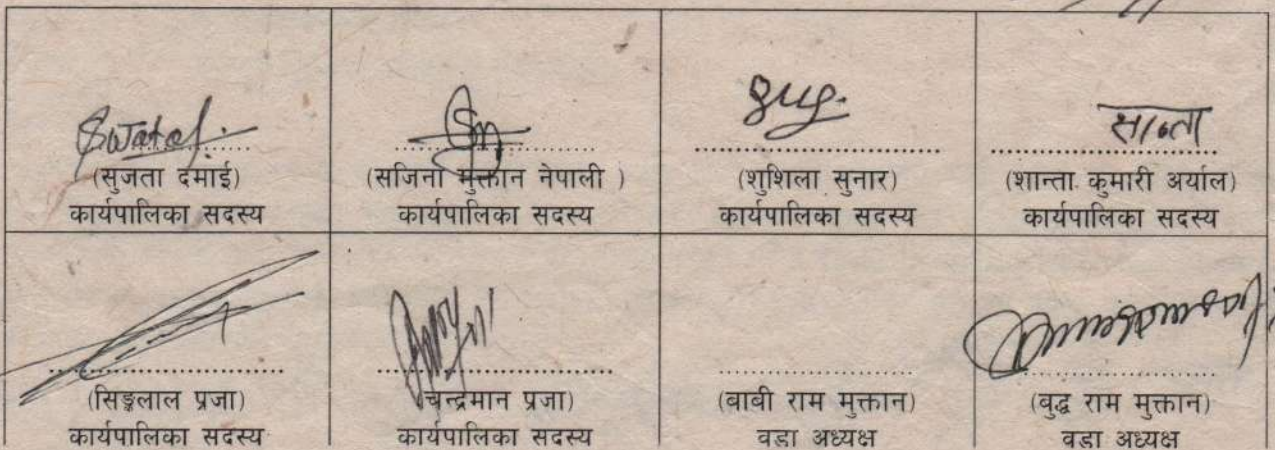 Swata
(सुजता दमाई)
कार्यपालिका सदस्य
(सजिना मुक्तान नेपाली )
कार्यपालिका सदस्य
(शुशिला सुनार)
कार्यपालिका सदस्य
सान्ता
(शान्ता कुमारी अर्याल)
कार्यपालिका सदस्य
(सिङ्गलाल प्रजा)
कार्यपालिका सदस्य
(चन्द्रमान प्रजा)
कार्यपालिका सदस्य
(बाबी राम मुक्तान)
वडा अध्यक्ष
(बुद्ध राम मुक्तान)
वडा अध्यक्ष